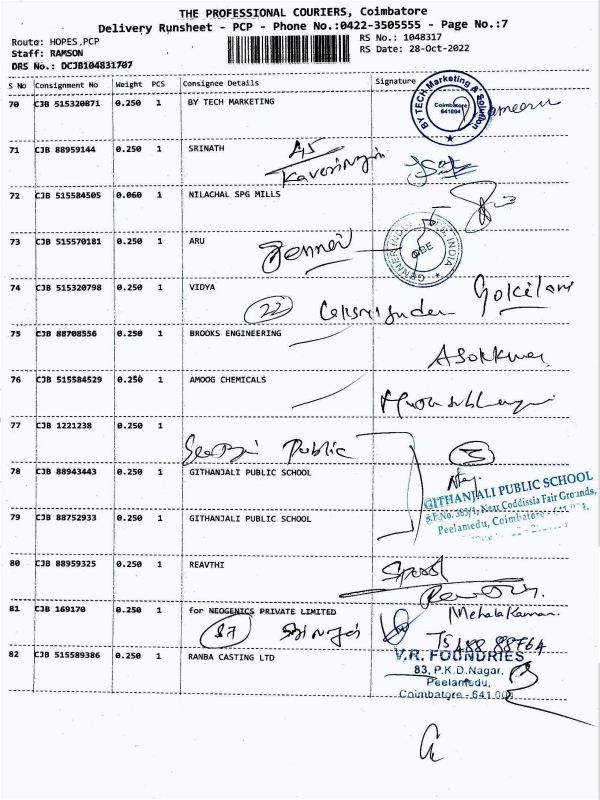 THE PROFESSIONAL COURIERS, Coimbatore
Delivery Runsheet - PCP - Phone No.:0422-3505555 - Page No.:7
Route: HOPES,PCP
RS No.: 1048317
Staff: RAMSON
RS Date: 28-Oct-2022
DRS No.: DCJB104831707
S No Consignment No Weight PCS Consignee Details Signature
70 CJB 515320871 0.250 1 BY TECH MARKETING
BY TECH Marketing & Solution
Coimbatore
641004
71 CJB 88959144 0.250 1 SRINATH
72 CJB 515584505 0.060 1 NILACHAL SPG MILLS
73 CJB 515570181 0.250 1 ARU
GENNER INDIA
CBE
74 CJB 515320798 0.250 1 VIDYA
22
Gokilam
75 CJB 88708556 0.250 1 BROOKS ENGINEERING
76 CJB 515584529 0.250 1 AMOOG CHEMICALS
77 CJB 1221238 0.250 1
Public
3
78 CJB 88943443 0.250 1 GITHANJALI PUBLIC SCHOOL
GITHANJALI PUBLIC SCHOOL
S.F.No. 369/1, Near Coddissia Fair Grounds,
Peelamedu, Coimbatore
79 CJB 88752933 0.250 1 GITHANJALI PUBLIC SCHOOL
80 CJB 88959325 0.250 1 REAVTHI
81 CJB 169170 0.250 1 for NEOGENICS PRIVATE LIMITED
Mehala
87
82 CJB 515589386 0.250 1 RANBA CASTING LTD
V.R. FOUNDRIES
83, P.K.D.Nagar,
Peelamedu,
Coimbatore - 641 004